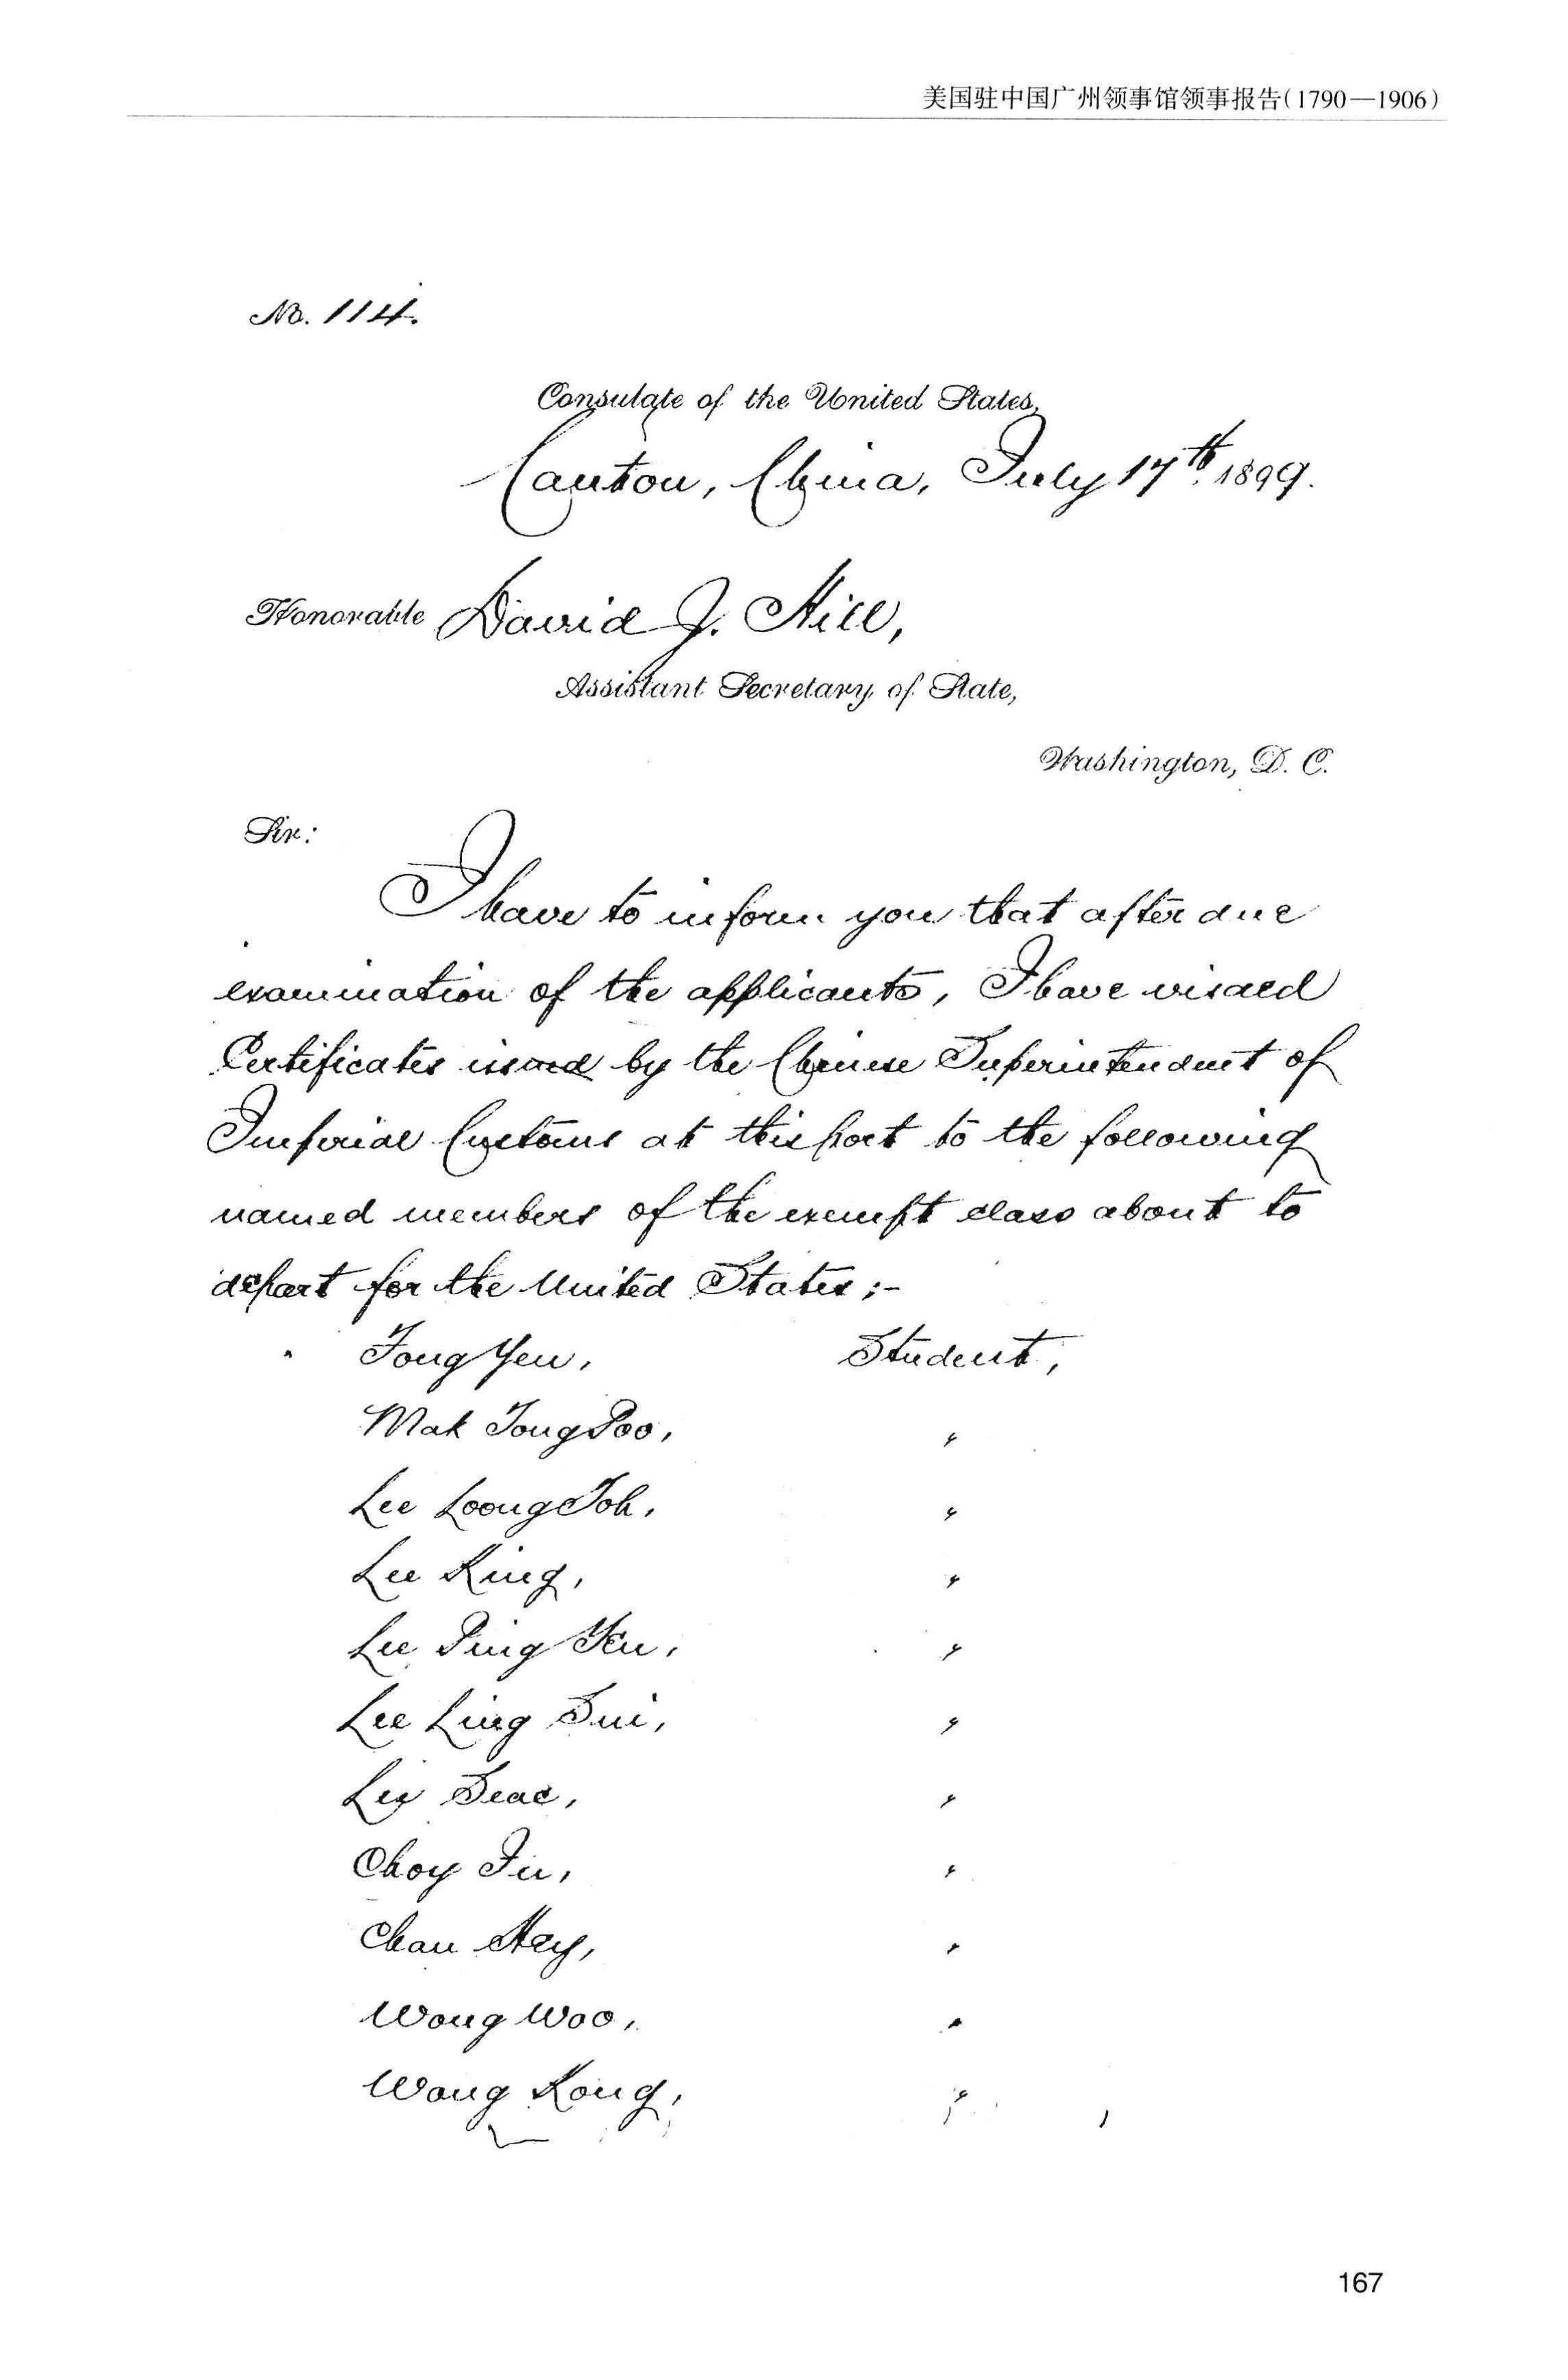 美国驻中国广州领事馆领事报告(1790—1906)
No. 114.
Consulate of the United States,
Canton, China, July 17th. 1899.
Honorable David J. Hill,
Assistant Secretary of State,
Washington, D. C.
Sir:
I have to inform you that after due
examination of the applicants, I have visaed
Certificates issued by the Chinese Superintendent of
Imperial Customs at this port to the following
named members of the exempt class about to
depart for the United States;-
Fong Yen, Student,
Mak Tong Poo, "
Lee Loong Toh, "
Lee King, "
Lee Ping Yen, "
Lee Ling Sui, "
Seac, "
Choy Fu, "
Chan Hey, "
Wong Woo, "
Wong Kong, "
167